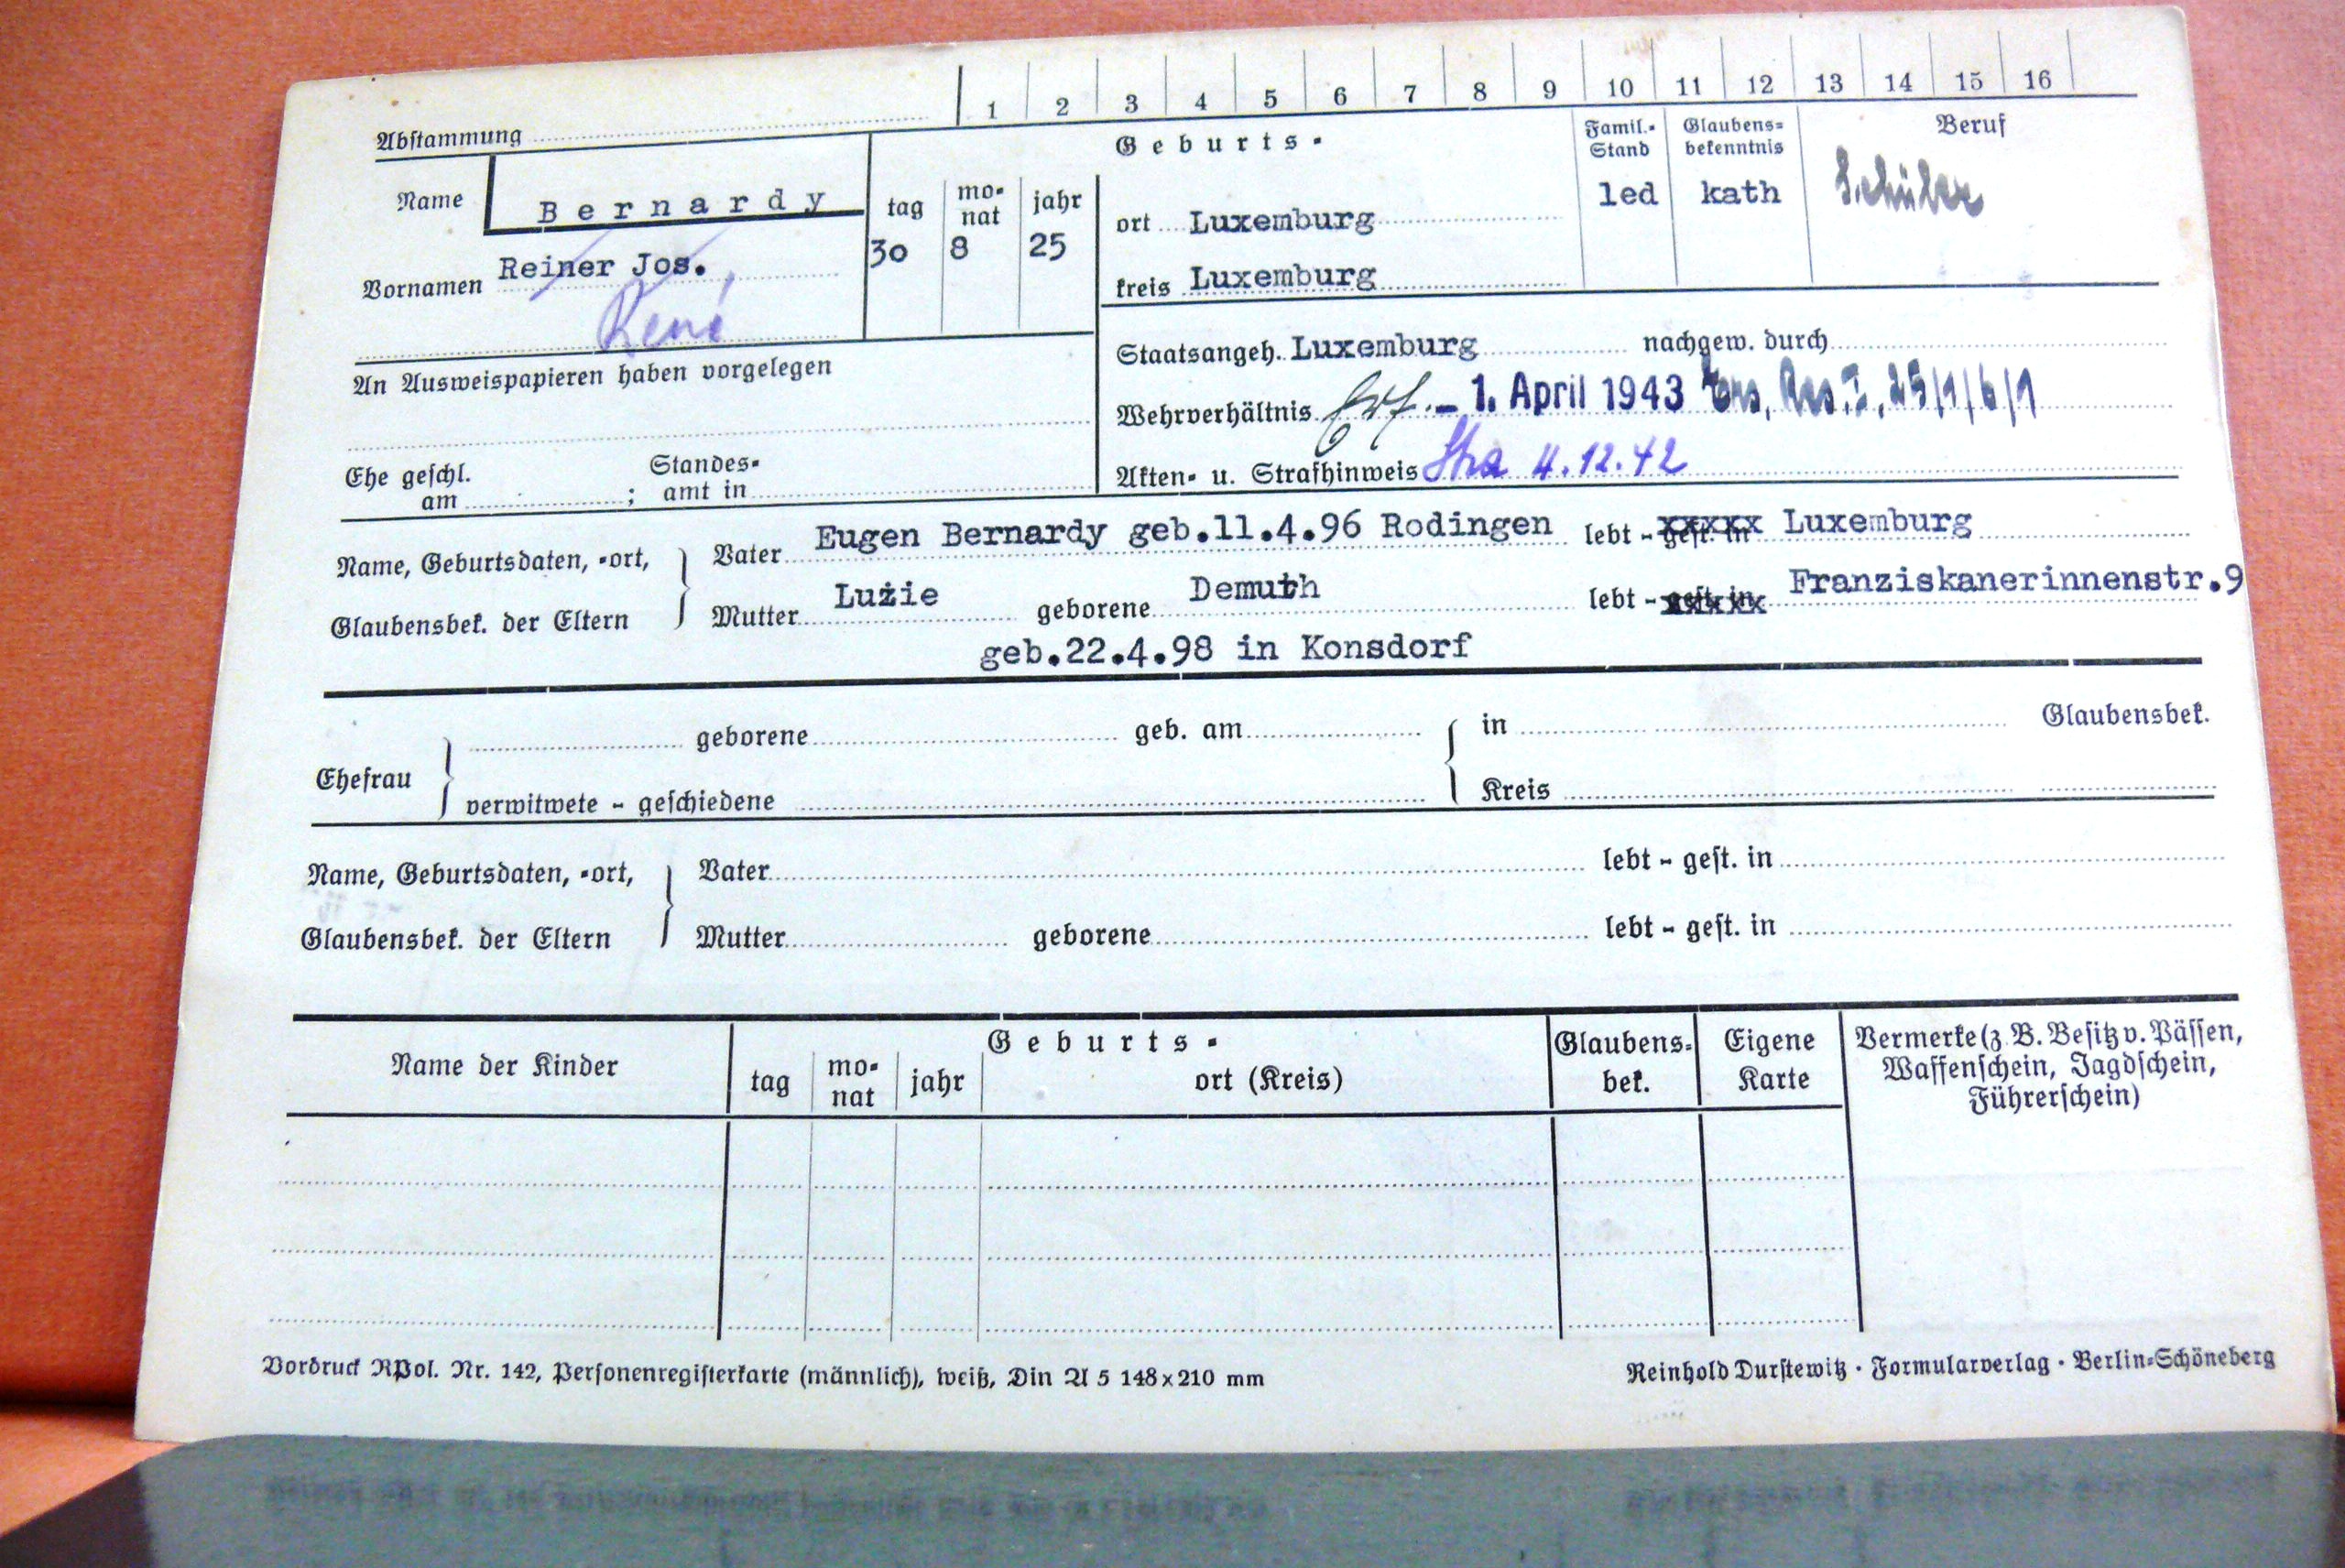 1 2 3 4 5 6 7 8 9 10 11 12 13 14 15 16
Abstammung
Name Bernardy
Vornamen Reiner Jos.
René
Geburts-
tag monat jahr
30 8 25
ort Luxemburg
kreis Luxemburg
Famil.-Stand
led
Glaubens-
bekenntnis
kath
Beruf
Schüler
An Ausweispapieren haben vorgelegen
Staatsangeh. Luxemburg nachgew. durch
Wehrverhältnis Erf. - 1. April 1943 Ers. Res. I, 25/1/6/1
Akten- u. Strafhinweis 4.12.42
Ehe geschl.
am ; Standes-
amt in
Name, Geburtsdaten, -ort,
Glaubensbek. der Eltern
Vater Eugen Bernardy geb.11.4.96 Rodingen lebt - gest. in Luxemburg
Mutter Luzie geborene Demuth lebt - gest. in Franziskanerinnenstr.9
geb.22.4.98 in Konsdorf
Ehefrau
geborene geb. am in Glaubensbek.
verwitwete - geschiedene Kreis
Name, Geburtsdaten, -ort,
Glaubensbek. der Eltern
Vater lebt - gest. in
Mutter geborene lebt - gest. in
Name der Kinder
Geburts-
tag monat jahr ort (Kreis)
Glaubens-
bek.
Eigene
Karte
Vermerke (z. B. Besitz v. Pässen,
Waffenschein, Jagdschein,
Führerschein)
Vordruck RPol. Nr. 142, Personenregisterkarte (männlich), weiß, Din A 5 148x210 mm
Reinhold Durstewitz · Formularverlag · Berlin-Schöneberg